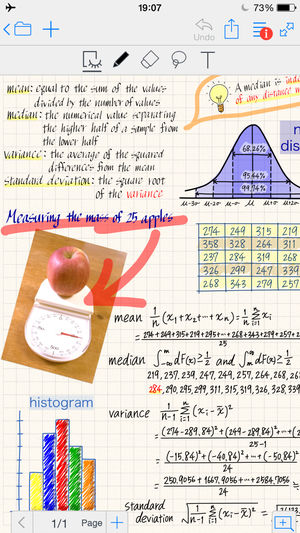 19:07
73%
Undo
1
T
mean: equal to the sum of the values
divided by the number of values
median: the numerical value separating
the higher half of a sample from
the lower half
variance: the average of the squared
differences from the mean
standard deviation: the square root
of the variance
A median is
of any distance
68.26%
95.44%
99.74%
μ-3σ μ-2σ μ-σ μ μ+σ μ+2σ
Measuring the mass of 25 apples
274 249 315 219
358 328 264 311
237 284 319 268
326 299 247 339
268 343 279 257
mean 1/n (x₁+x₂+···+xₙ) = 1/n Σ xᵢ
= 274+249+315+219+295+···+268+343+299+257+2
25
median ∫ dF(x) ≥ 1/2 and ∫ dF(x) ≥ 1/2
219, 237, 239, 247, 249, 257, 264, 268, 26
284, 290, 295, 299, 311, 315, 319, 326, 328, 339
histogram
variance 1/n-1 Σ (xᵢ-x̄)²
= (274-289.84)²+(249-289.84)²+···+(
25-1
= (-15.84)²+(-40.84)²+···+(-50.84)²
24
= 250.9056+1667.9056+···+2584.7056
24
standard
deviation √1/n-1 Σ (xᵢ-x̄)²
1/1 Page